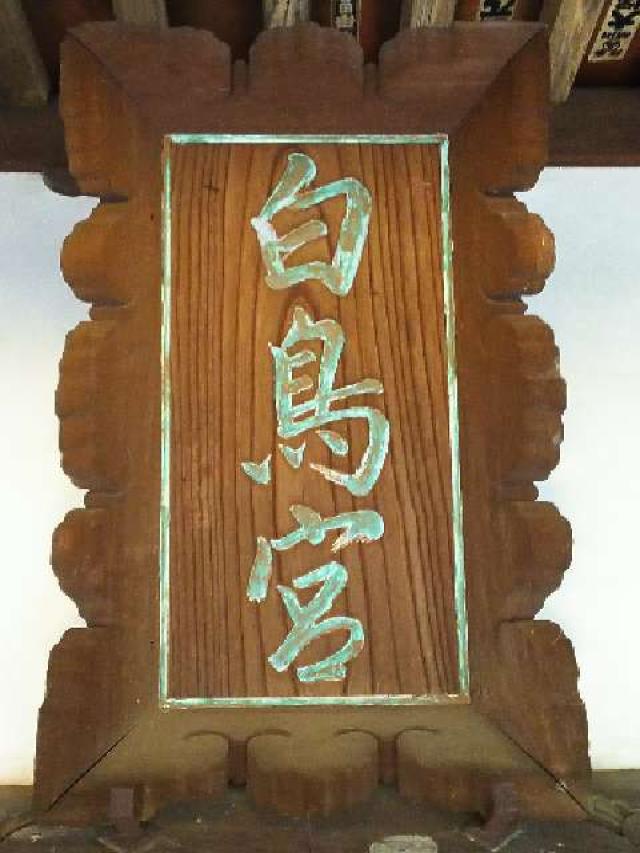 白鳥宮